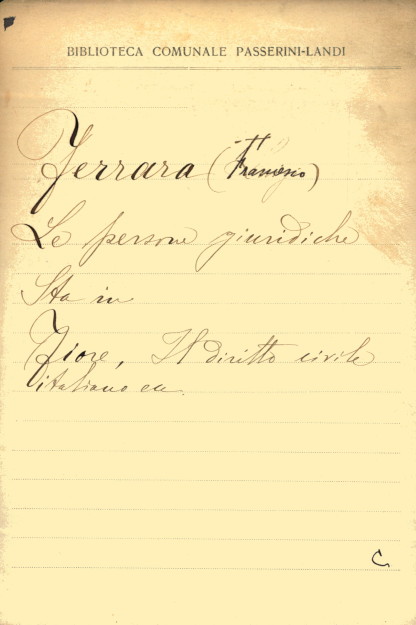 BIBLIOTECA COMUNALE PASSERINI-LANDI
Ferrara (Francesco)
Le persone giuridiche
Sta in
Fiore, Il diritto civile
italiano ecc.
C.